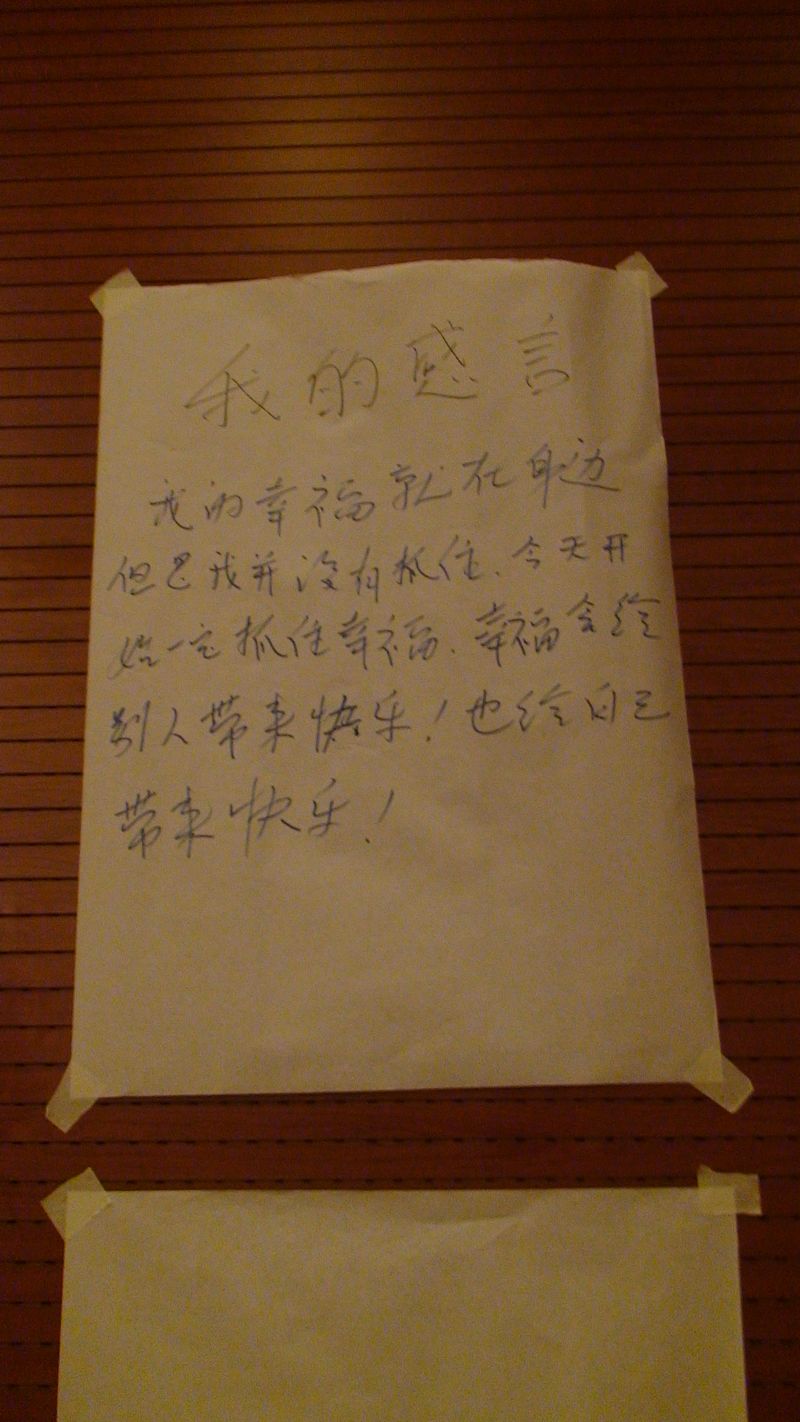 我的感言
我的幸福就在身边
但是我并没有抓住、今天开
始一定抓住幸福、幸福会给
别人带来快乐！也给自己
带来快乐！